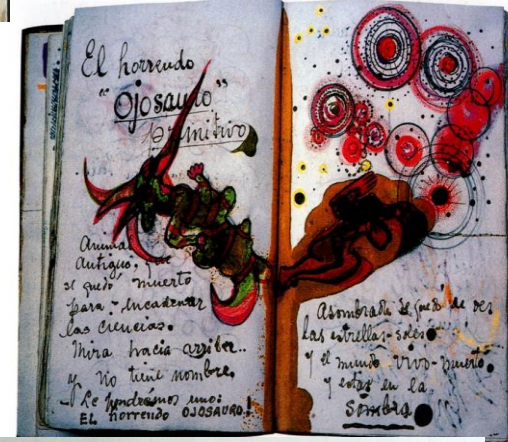 El horrendo
"Ojosauro"
primitivo
Animal
antiguo, que
se quedó muerto
para encadenar
las ciencias.
Mira hacia arriba..
y no tiene nombre.
-Le pondremos uno:
EL horrendo OJOSAURO!
Asombrada se quedó de ver
las estrellas-soles
y el mundo vivo-muerto
y estar en la
Sombra